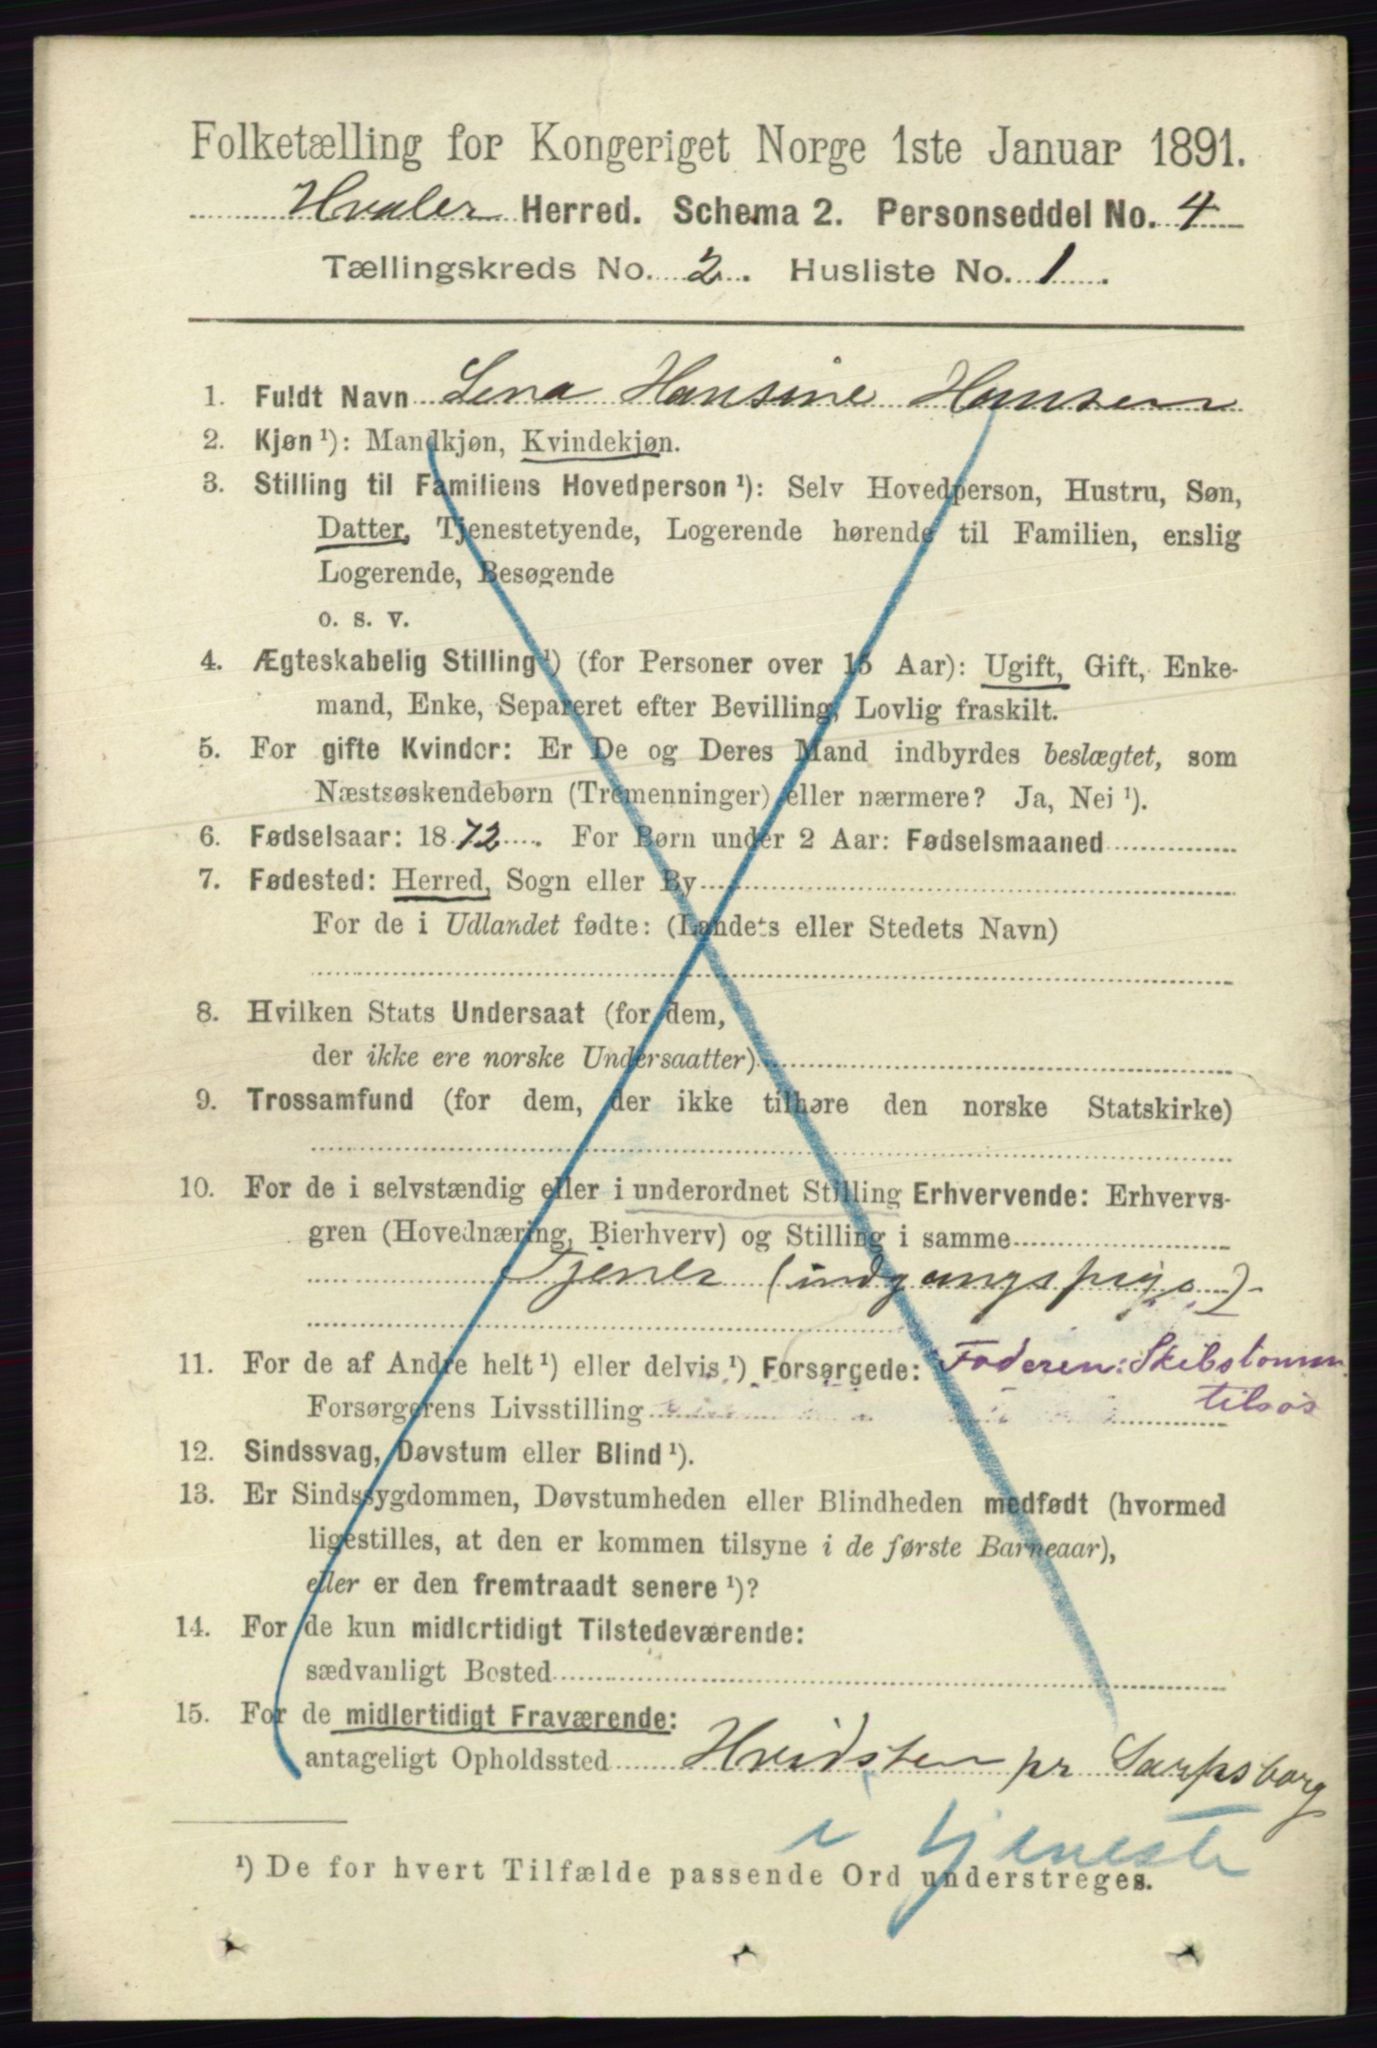 Folketælling for Kongeriget Norge 1ste Januar 1891.
Hvaler Herred. Schema 2. Personseddel No. 4
Tællingskreds No. 2. Husliste No. 1.
1. Fuldt Navn Lena Hansine Hansen
2. Kjøn ¹): Mandkjøn, Kvindekjøn.
3. Stilling til Familiens Hovedperson ¹): Selv Hovedperson, Hustru, Søn,
Datter, Tjenestetyende, Logerende hørende til Familien, enslig
Logerende, Besøgende
o. s. v.
4. Ægteskabelig Stilling ¹) (for Personer over 15 Aar): Ugift, Gift, Enke-
mand, Enke, Separeret efter Bevilling, Lovlig fraskilt.
5. For gifte Kvinder: Er De og Deres Mand indbyrdes beslægtet, som
Næstsøskendebørn (Tremenninger) eller nærmere? Ja, Nei ¹).
6. Fødselsaar: 1872. For Børn under 2 Aar: Fødselsmaaned
7. Fødested: Herred, Sogn eller By
For de i Udlandet fødte: (Landets eller Stedets Navn)
8. Hvilken Stats Undersaat (for dem,
der ikke ere norske Undersaatter)
9. Trossamfund (for dem, der ikke tilhøre den norske Statskirke)
10. For de i selvstændig eller i underordnet Stilling Erhvervende: Erhvervs-
gren (Hovednæring, Bierhverv) og Stilling i samme
Tjener (indgangspige)
11. For de af Andre helt ¹) eller delvis ¹) Forsørgede: Faderen: Skibstømm.
Forsørgerens Livsstilling tilsøs
12. Sindssvag, Døvstum eller Blind ¹).
13. Er Sindssygdommen, Døvstumheden eller Blindheden medfødt (hvormed
ligestilles, at den er kommen tilsyne i de første Barneaar),
eller er den fremtraadt senere ¹)?
14. For de kun midlertidigt Tilstedeværende:
sædvanligt Bosted
15. For de midlertidigt Fraværende:
antageligt Opholdssted Hvidsten pr Sarpsborg
i tjeneste
¹) De for hvert Tilfælde passende Ord understreges.